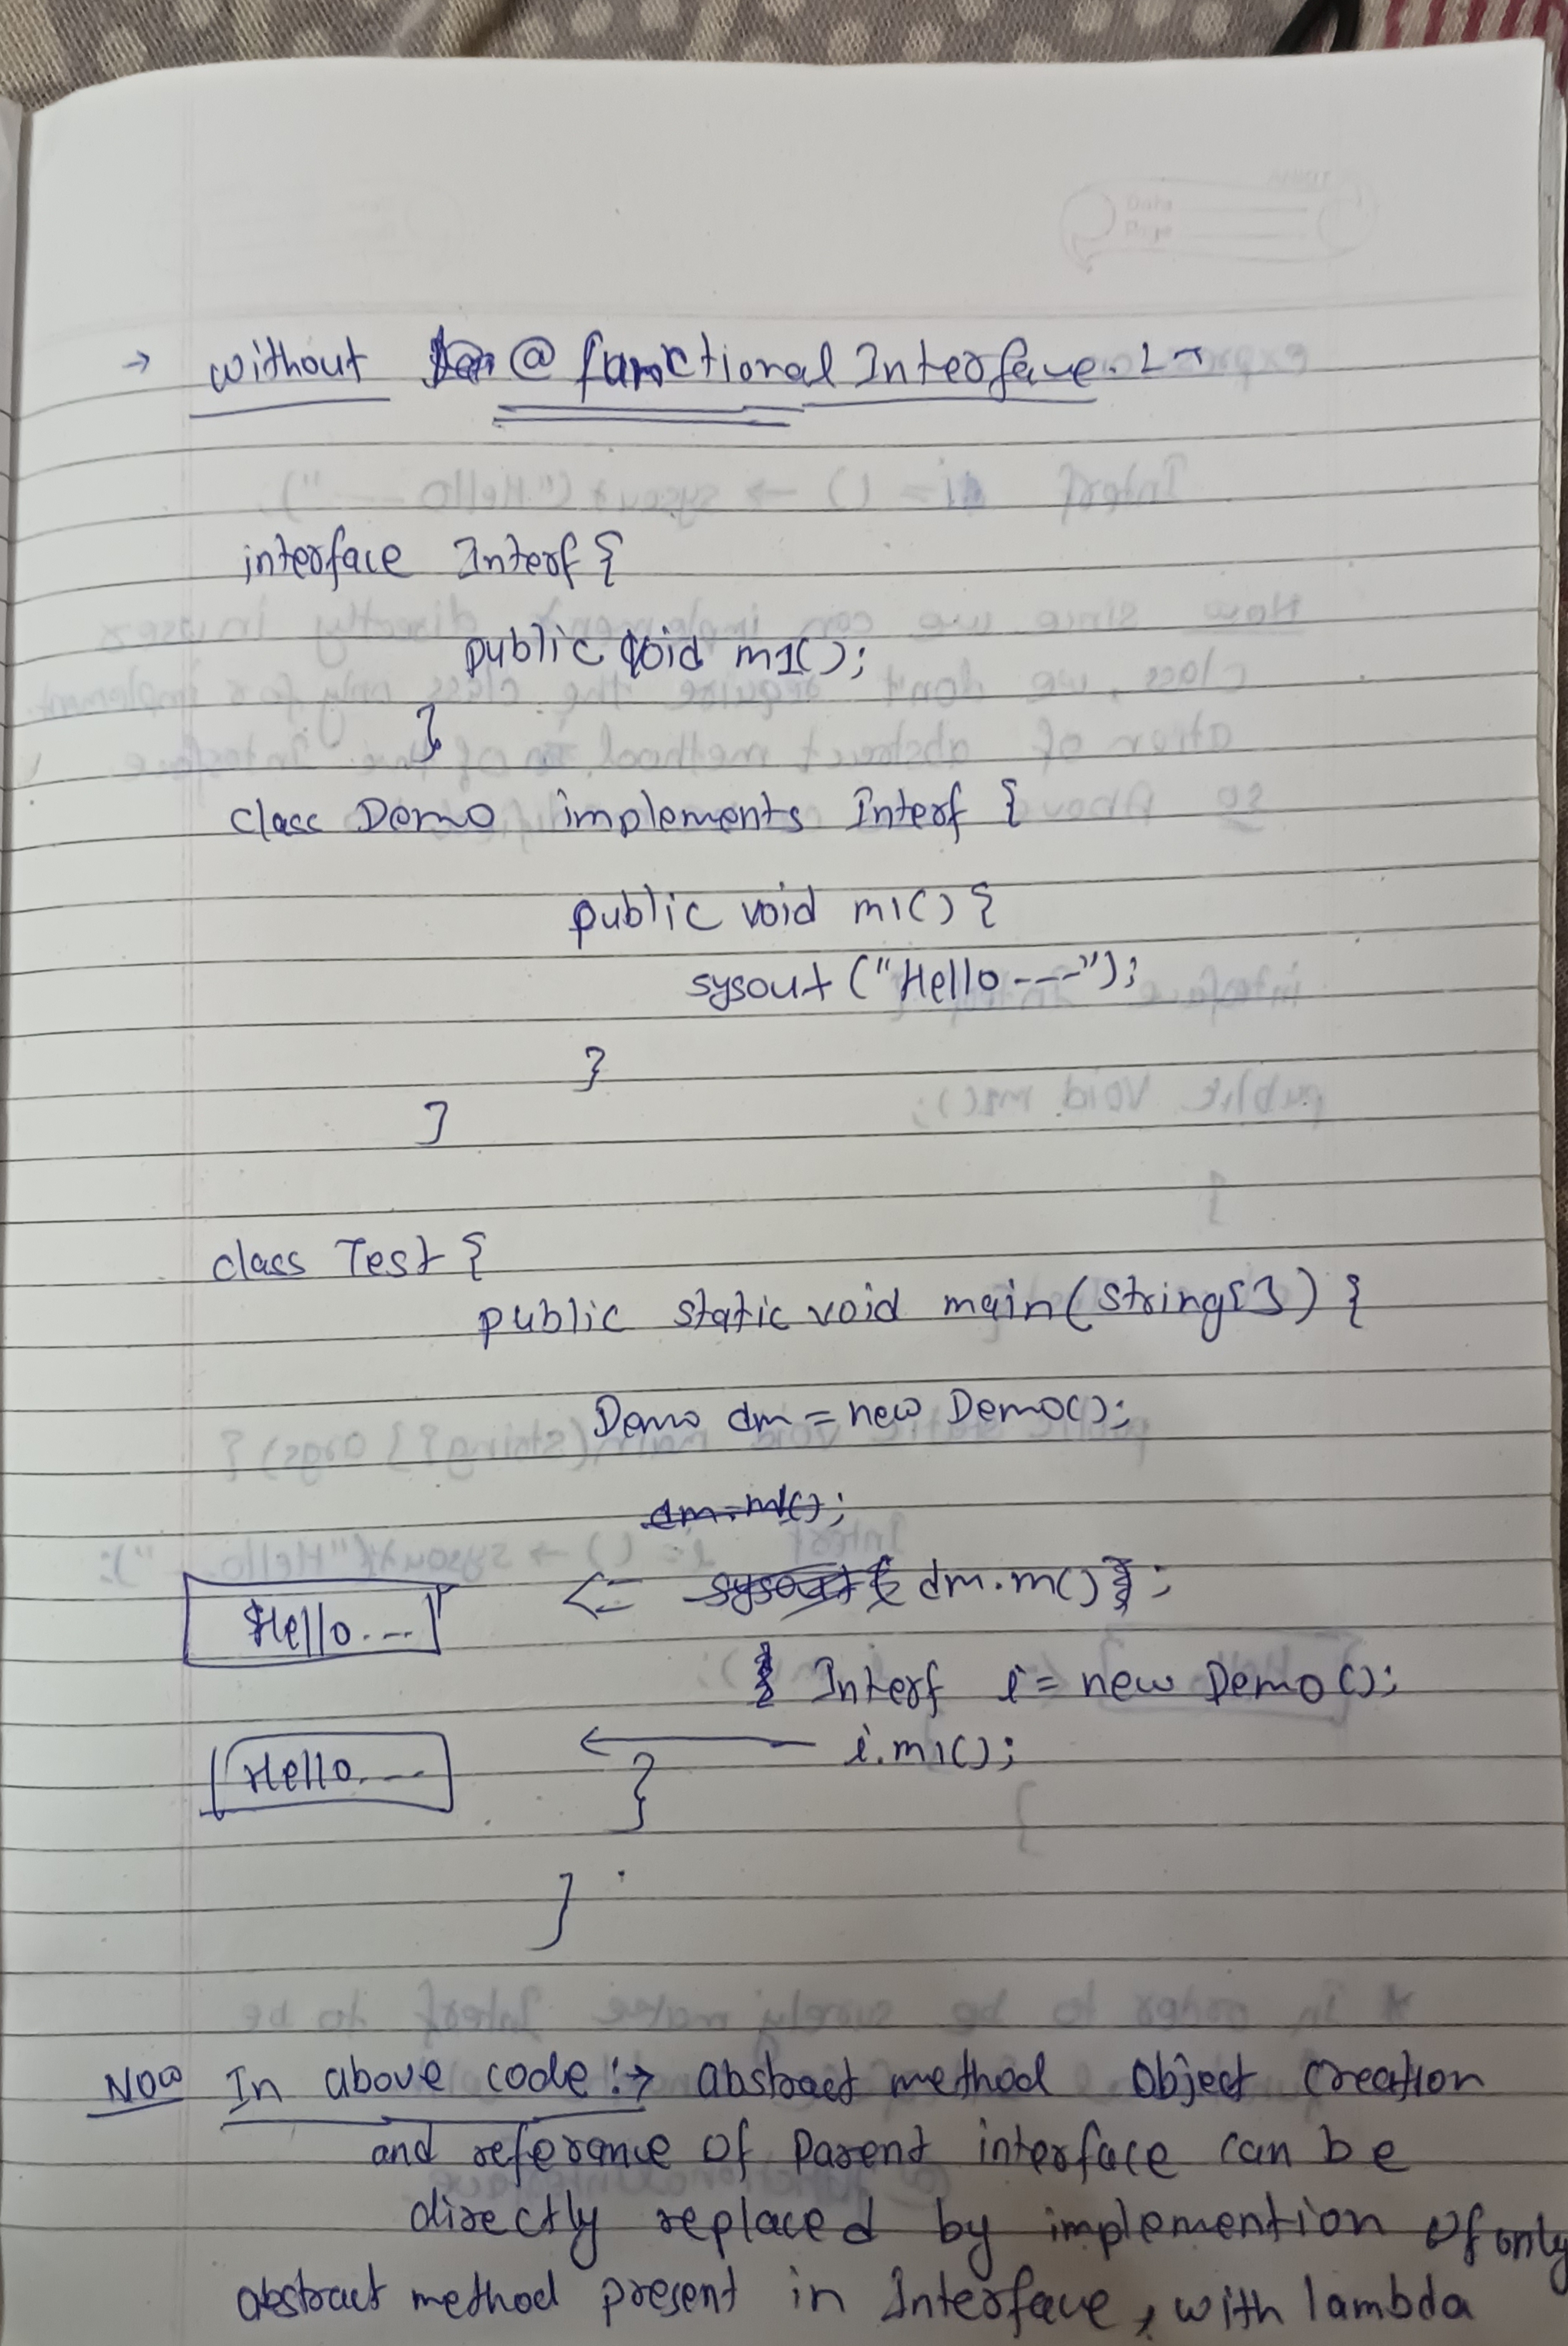 → without @ functional Interface :→
interface Interf {
public void m1();
}
class Demo implements Interf {
public void m1() {
sysout ("Hello ---");
}
}
class Test {
public static void main(string[]) {
Demo dm = new Demo();
dm.m1();
Hello... <= sysout ( dm.m() );
Interf i = new Demo();
Hello.... ← i.m1();
}
}
Now In above code :→ abstract method Object creation
and referance of Parent interface can be
directly replaced by implemention of only
abstract method present in Interface, with lambda